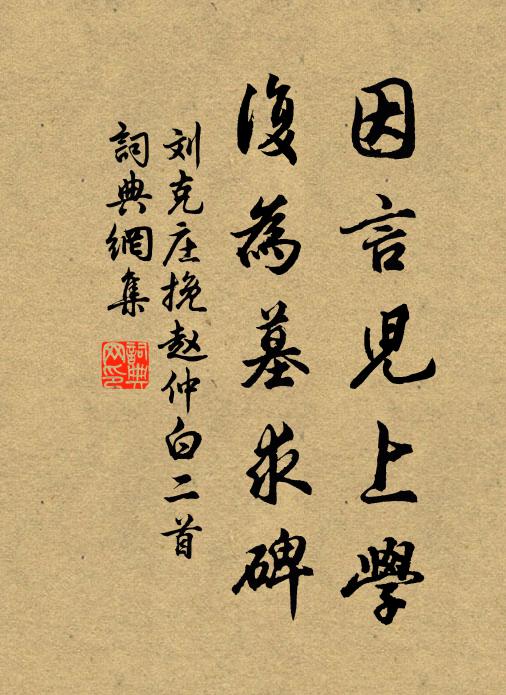 因言児上學
復為墓求碑
刘克庄挽赵仲白二首
詞典網集
詞典網印